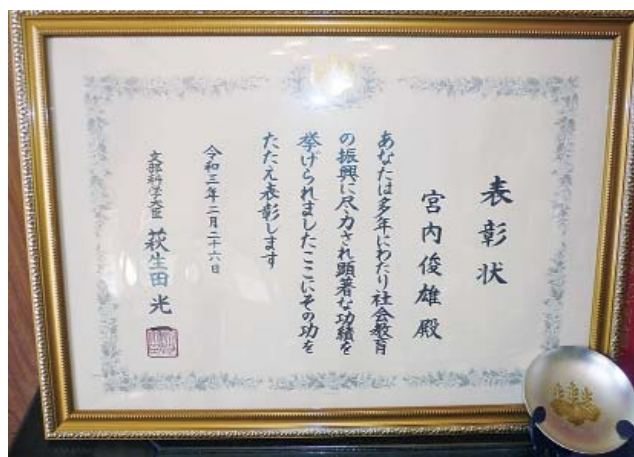 表彰状
宮内俊雄殿
あなたは多年にわたり社会教育
の振興に尽力され顕著な功績を
挙げられましたここにその功を
たたえ表彰します
令和三年二月二十六日
文部科学大臣 萩生田光一